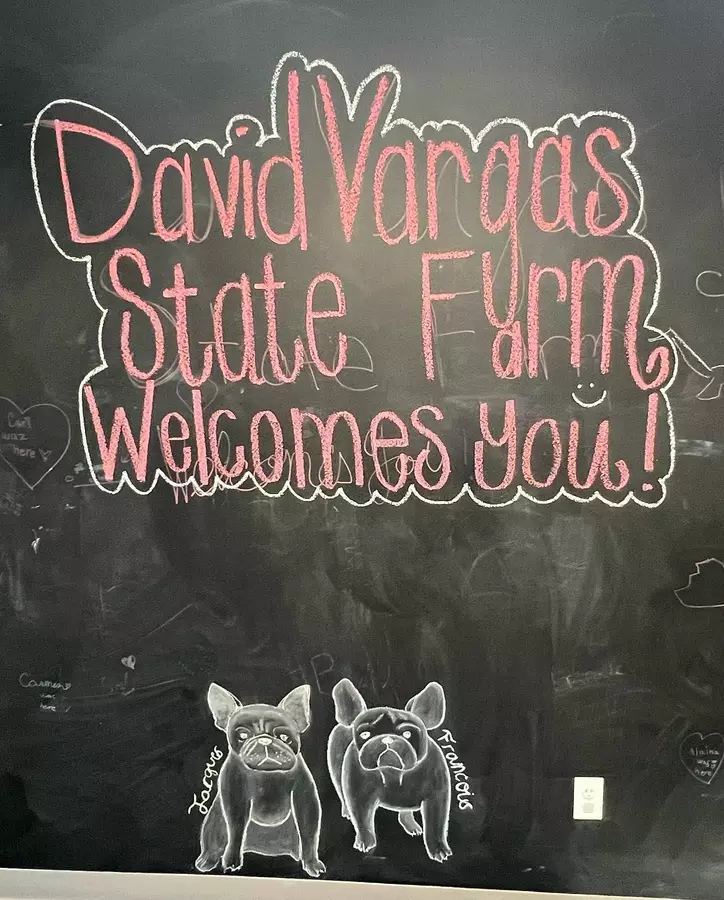 David Vargas
State Farm
Welcomes you!
was
here
Carmen
was
here
Jacques
Francois
Alaina
was
here